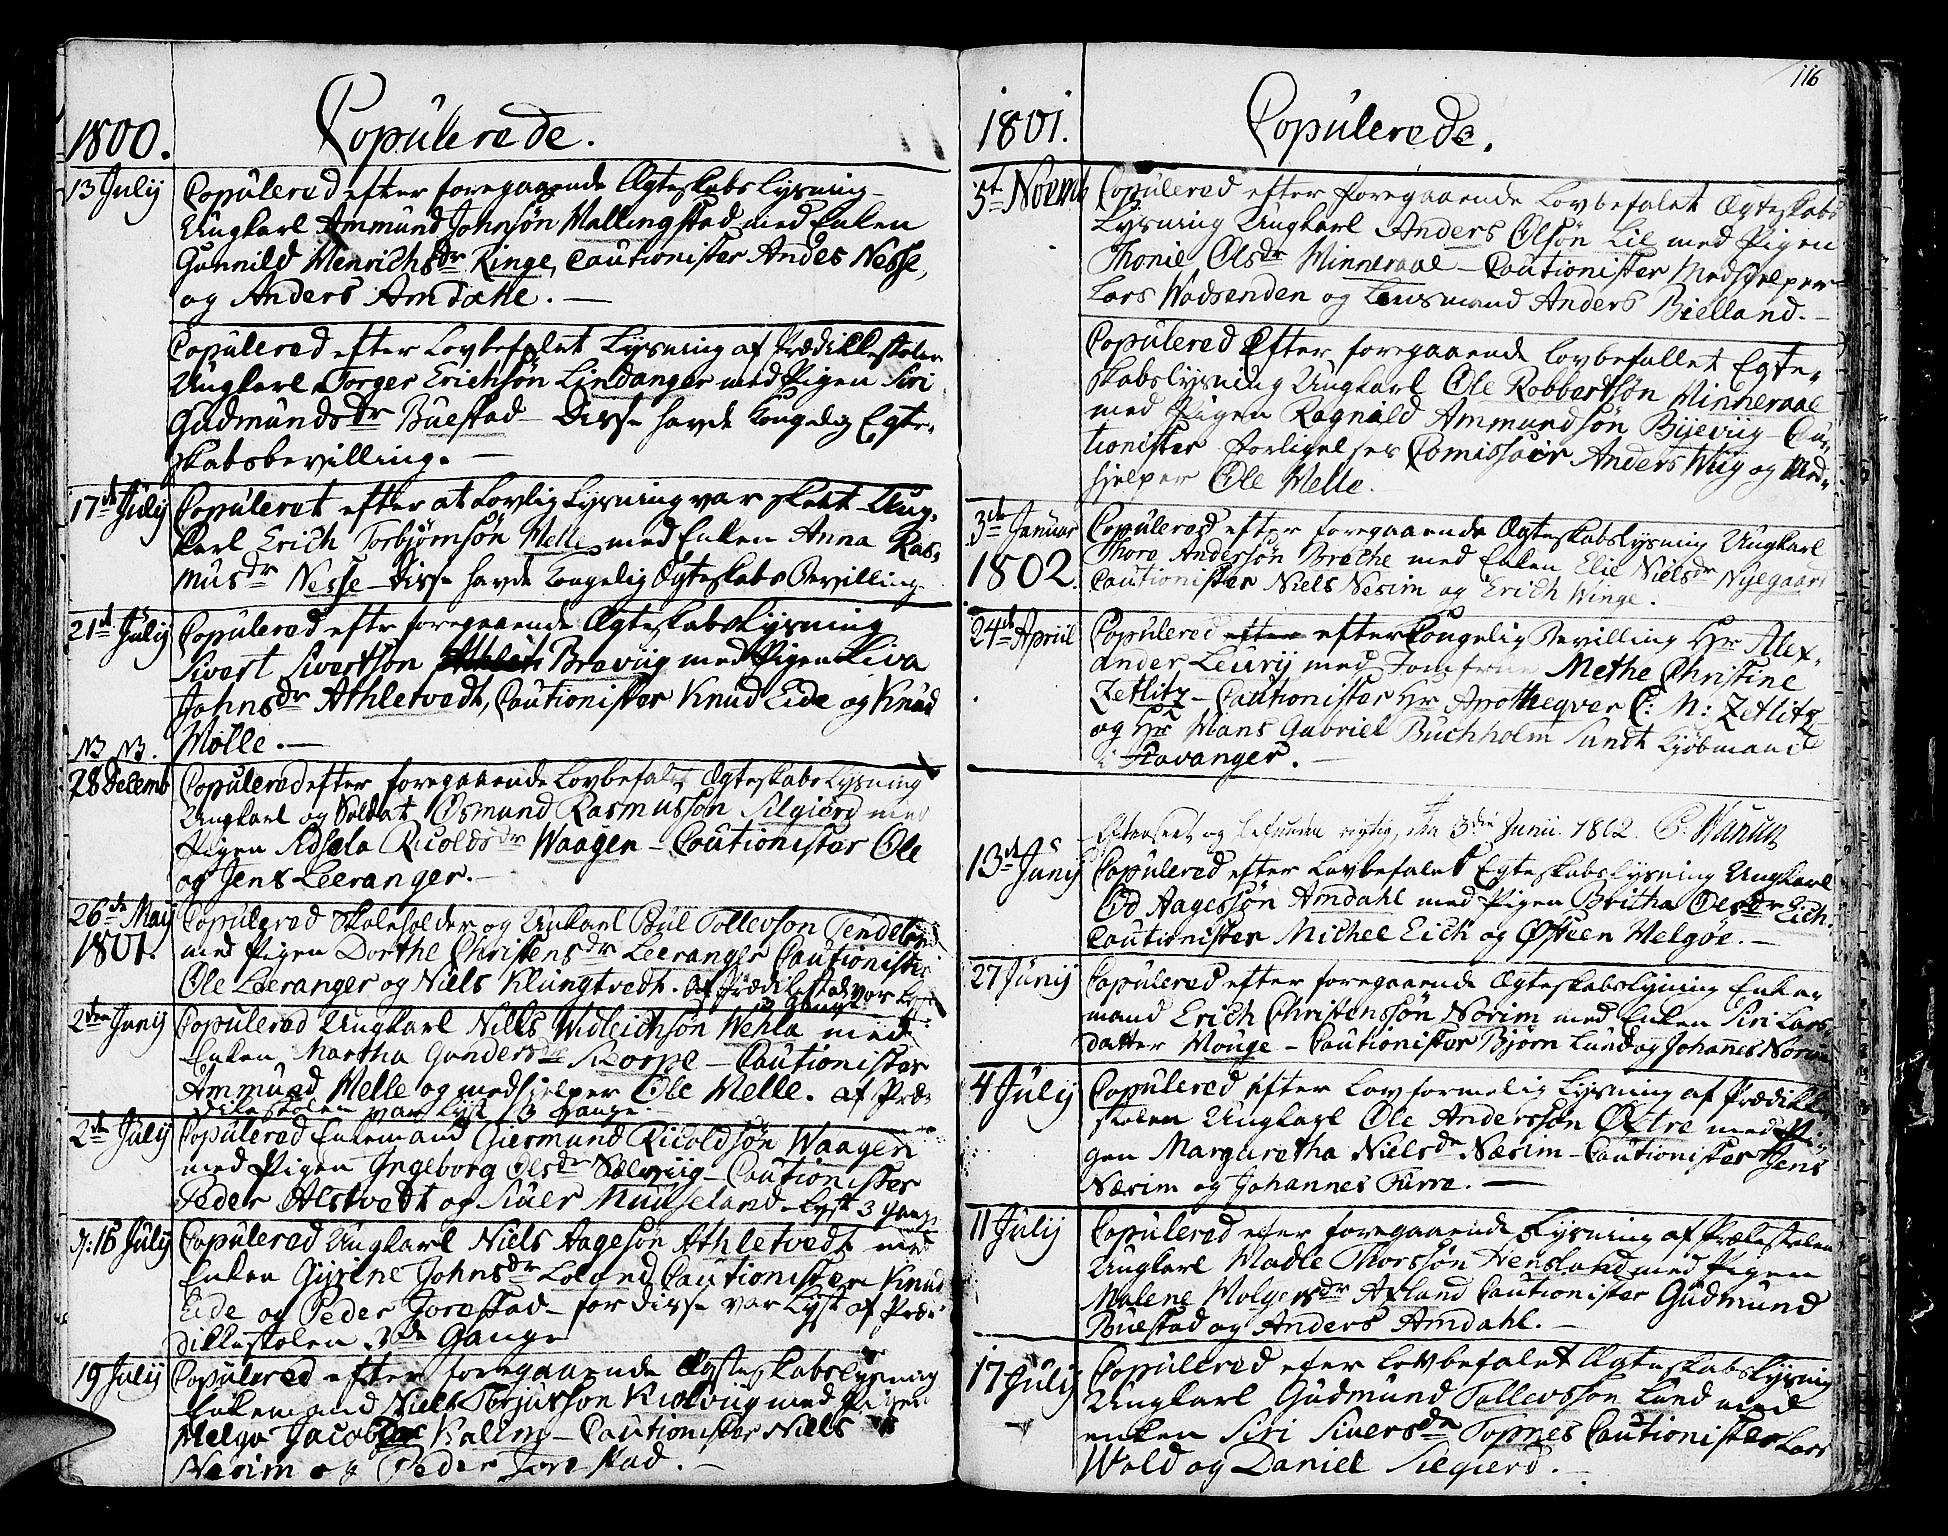 1800.
Copulerede.
13 Julij
Copulered efter foregaaende Ægteskabs Lysning
Ungkarl Ammund Johnsøn Hallingstad med Enken
Gunnild Henrichsdr Ringe, Cautionister Andes Nesse,
og Anders Amdahl. —
Copulered efter Lovbefalet Lysning af Prædikkestolen
Ungkarl Torger Erichsøn Lindanger med Pigen Siri
Gudmundsdr Buestad — Disse havde Kongelig Egte-
skabsbevilling. —
17de Julij
Copuleret efter at Lovlig Lysning var skeet Ung-
karl Erich Torbjørnsøn Helle med Enken Anna Ras-
musdr Nesse — Disse havde Kongelig Ægteskabs Bevilling
21de Julij
Copulered eftr foregaaende Ægteskabs Lysning
Sivert Sivertsøn Breviig med Pigen Siva
Johnsdr Athletvedt, Cautionister Knud Eide og Knud
Mølle. —
NB NB.
28 Decemb
Copulered efter foregaaende Lovbefalet Ægteskabs Lysning
Ungkarl og Soldat Osmund Rasmussøn Silgiørd med
Pigen Adsela Ricoldsdr Waagen — Cautionister Ole
og Jens Leeranger. —
26de Maij
1801.
Copulered Skoleholder og Unkarl Buil Tollevson
med Pigen Dorthe Christensdr Leeranger Cautionister
Ole Leeranger og Niels Klungtvedt. Af Prædikestolen var Lyst
3 Gange
2den Junij
Copulered Ungkarl Nills Widleichsøn Wehla med
Enken Martha Gundersdr Skorpe — Cautionister
Ammund Helle og medhjelper Ole Helle. af Præ-
dikestolen var Lyst 3 Gange.
2de Julij
Copulered Enkemand Giermund Ricoldsøn Waagen
med Pigen Ingeborg Olsdr Sælviig — Cautionister
Peder Alstvedt og Siver Muuseland — Lyst 3 gange
d: 16 Julij
Copulered Ungkarl Niels Aagesøn Athletvedt med
Enken Gyrine Johnsdr Loland Cautionister Knud
Eide og Peder Jorestad — for disse var Lyst af Præ-
dikkestolen 3de Gange
19 Julij
Copulered efter foregaaende Ægteskabslysning
Enkemand Niels Torjusson Kiølviig med Pigen
Helga Jacobsdr Kallm — Cautionister Niels
Nesim og Peder Jorestad. —
116
1801.
Copulerede.
5te Novmb
Copulered efter foregaaende Lovbefalet Ægteskabs
Lysning Ungkarl Anders Olsøn Lie med Pigen
Thonie Olsdr Hinneraae — Cautionister Medhjelper
Lars Wadsenden og Lensmand Anders Bielland. —
Copulered Efter foregaaende lovbefallet Egte-
skabslysning Ungkarl Ole Robbertsøn Hinneraae
med Pigen Ragnild Ammundsøn Bijeviig — Cau-
tionister Forligelses Comissair Anders Wiig og Med-
hjelper Ole Helle.
3de Januar
1802.
Copulered efter foregaaende Ægteskabslysning Ungkarl
Thore Andersøn Brathe med Enken Elie Nielsdr Nygaard
Cautionister Niels Nesim og Erich Winge.
24de Apriil
Copulered efter efter Kongelig Bevilling Hr Alex-
ander Leurij med Jomfrue Methe Christine
Zetlitz — Cautionister Hr Apotheqver C: N: Zetlitz
og Hr Hans Gabriel Buchholm Samt Kjøbmand
i Stavanger. —
Efterseet og befunden rigtig, den 3die Junii 1802.
13de Junij
Copulered efter Lovbefalet Egteskabslysning Ungkarl
Od Aagessøn Amdahl med Pigen Britha Olsdr Eich.
Cautionister Michel Eich og Østeen Helgøe. —
27 Junij
Copulered efter foregaaende Ægteskabslysning Enke-
mand Erich Christenssøn Norim med Enken Siri Lars-
datter Houge — Cautionister Bjørn Lund og Johanes Norim
4 Julij
Copulered efter Lovformelig Lysning af Prædikke-
stolen Ungkarl Ole Andersson Østre med Pi-
gen Margaretha Nielsdr Næsim — Cautionister Jens
Næsim og Johannes Furre. —
11 Julij
Copulered efer foregaaende Lysning af Prækestolen
Ungkarl Madle Thorssøn Hensland med Pigen
Malene Holgersdr Axland Cautionister Gudmund
Buestad og Anders Amdahl. —
17 Julij
Copulered efer Lovbefalet Ægteskabs Lysning
Ungkarl Gudmund Tollevsson Lund med
enken Siri Siversdr Topnes Cautionister Lars
Wold og Daniel Silgierd. —